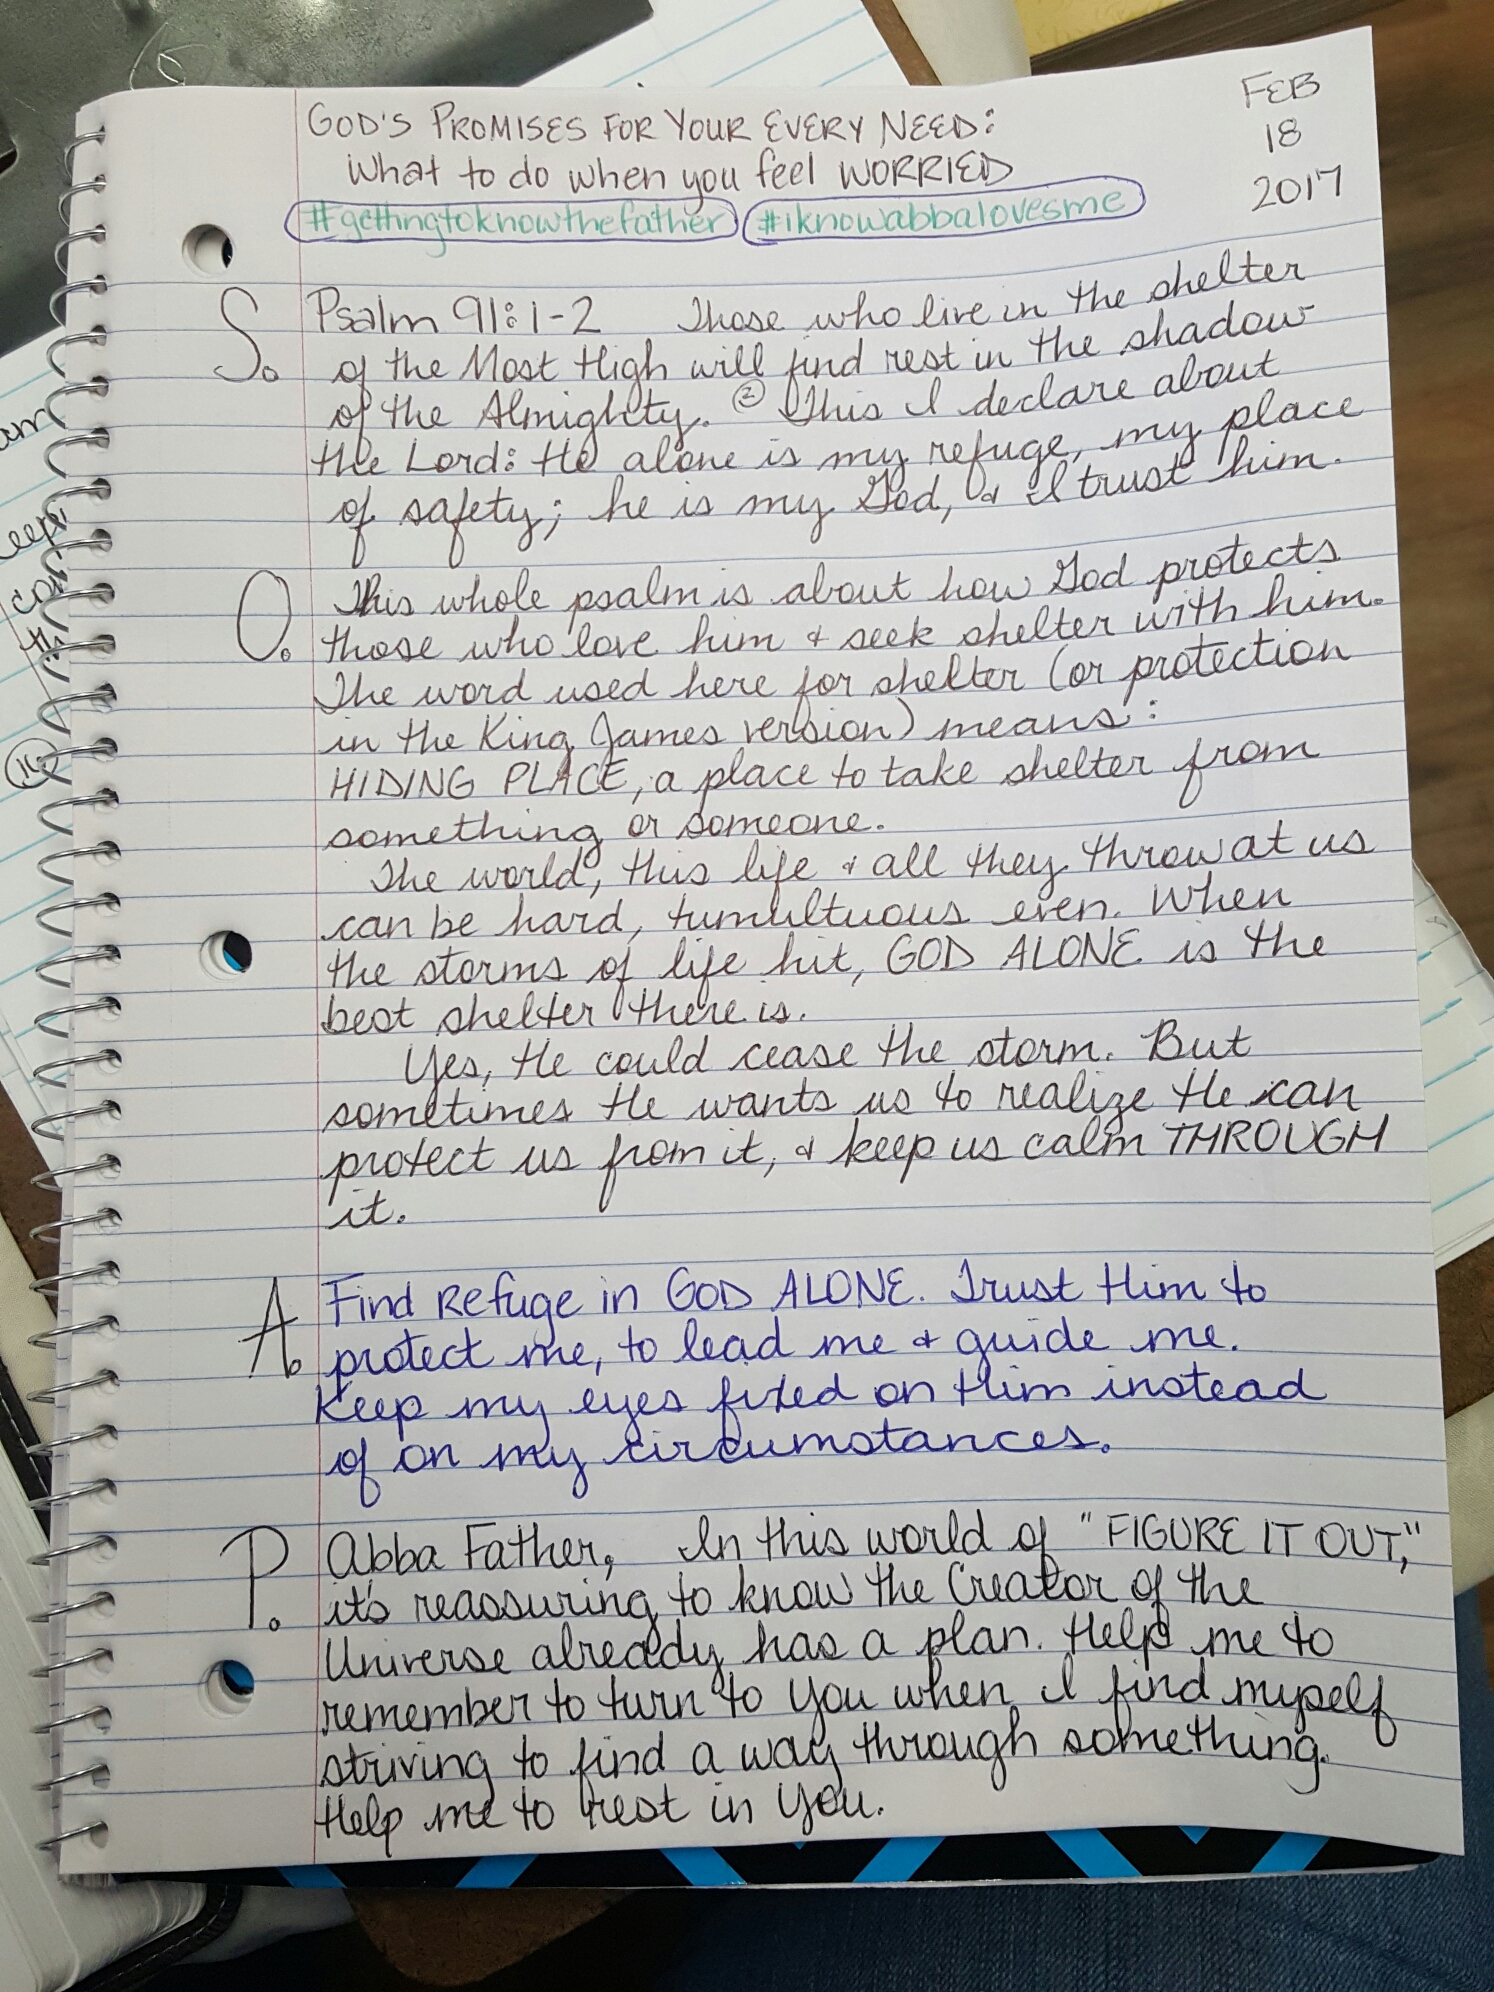 GOD'S PROMISES FOR YOUR EVERY NEED:
What to do when you feel WORRIED
#gettingtoknowthefather #iknowabbalovesme
FEB
18
2017
S. Psalm 91:1-2 Those who live in the shelter
of the Most High will find rest in the shadow
of the Almighty. ② This I declare about
the Lord: He alone is my refuge, my place
of safety; he is my God, & I trust him.
O. This whole psalm is about how God protects
those who love him & seek shelter with him.
The word used here for shelter (or protection
in the King James version) means:
HIDING PLACE, a place to take shelter from
something or someone.
The world, this life & all they throw at us
can be hard, tumultuous even. When
the storms of life hit, GOD ALONE is the
best shelter there is.
Yes, He could cease the storm. But
sometimes He wants us to realize He can
protect us from it, & keep us calm THROUGH
it.
A. Find Refuge in GOD ALONE. Trust Him to
protect me, to lead me & guide me.
Keep my eyes fixed on Him instead
of on my circumstances.
P. Abba Father, In this world of "FIGURE IT OUT,"
it's reassuring to know the Creator of the
Universe already has a plan. Help me to
remember to turn to You when I find myself
striving to find a way through something.
Help me to rest in You.